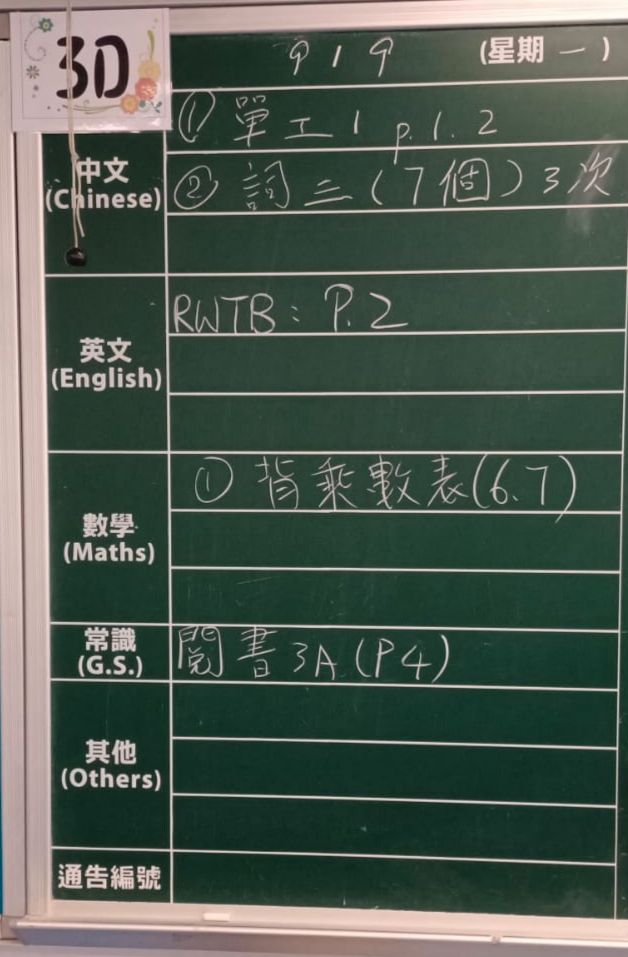 3D
9 / 9 (星期一)
中文
(Chinese)
① 單工1 p.1.2
② 詞三(7個)3次
英文
(English)
RWTB: P.2
數學
(Maths)
① 背乘數表(6.7)
常識
(G.S.)
閱書3A(P4)
其他
(Others)
通告編號